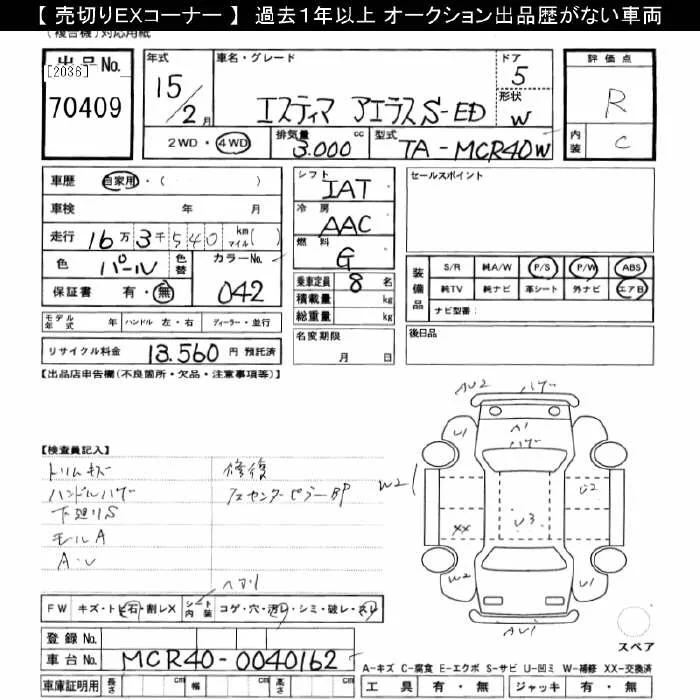 【 売切りEXコーナー 】 過去1年以上 オークション出品歴がない車両
(複合機)対応用紙
出品No.
[2036]
70409
年式
15/2月
車名・グレード
エスティマ アエラスS-ED
ドア
5
形状
W
評価点
R
内装
C
2WD・4WD
排気量 cc
3.000
型式
TA-MCR40W
車歴 自家用・( )
車検 年 月
走行 16万3千540 km マイル( )
色 パール 色替
カラーNo.
042
保証書 有・無
モデル年式 年 ハンドル 左・右 ディーラー・並行
リサイクル料金 13.560 円 預託済
シフト IAT
冷房 AAC
燃料 G
乗車定員 8 名
積載量 kg
総重量 kg
名変期限 月 日
セールスポイント
装備品
S/R 純A/W P/S P/W ABS
純TV 純ナビ 革シート 外ナビ エアB
ナビ型番:
後日品
【出品店申告欄(不良箇所・欠品・注意事項等)】
【検査員記入】
トリムキズ
ハンドルハゲ
下廻りS
モールA
A・U
修復
フセンターピラーBP
AU2 ハゲ
U1
A1
ハゲ
W2
U2
XX
U3
W2
U1
AU1
ヘコリ
FW キズ・トビ石・割レX
シート内装 コゲ・穴・汚レ・シミ・破レ・スレ
スペア
登録No.
車台No. MCR40-0040162
A-キズ C-腐食 E-エクボ S-サビ U-凹ミ W-補修 XX-交換済
車庫証明用 長さ cm 幅 cm 高さ cm
工具 有・無 ジャッキ 有・無